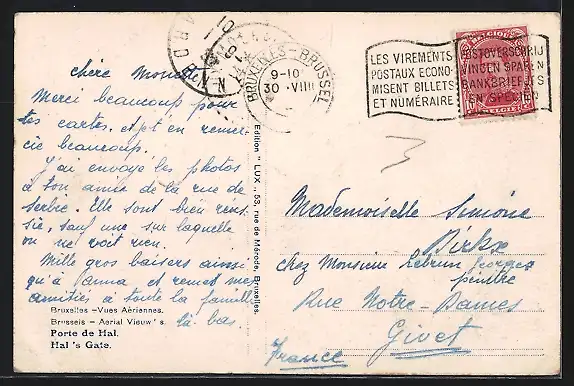 BRUXELLES - BRUSSEL
9-10
30 -VIII
LES VIREMENTS
POSTAUX ECONO-
MISENT BILLETS
ET NUMÉRAIRE
POSTOVERSCHRIJ
VINGEN SPAREN
BANKBRIEFJES
EN SPECIEN
BELGIQUE
BELGIE
chère
Merci beaucoup pour
tes cartes, et pt en remer-
cie beaucoup.
J'ai envoyé les photos
à ton amie de la rue de
Serbie. Elle sont bien réus-
sie, sauf une sur laquelle
on ne voit rien.
Mille gros baisers ainsi
qu'à Anna et remet mes
amitiés à toute la famille
là-bas.
Bruxelles -Vues Aériennes.
Brussels - Aerial Vieuw's.
Porte de Hal.
Hal 's Gate.
Edition " LUX ,, 53, rue de Mérode, Bruxelles.
Mademoiselle Simone
Dirkx
chez Monsieur Lebrun Georges
peintre
Rue Notre-Dames
Givet
France